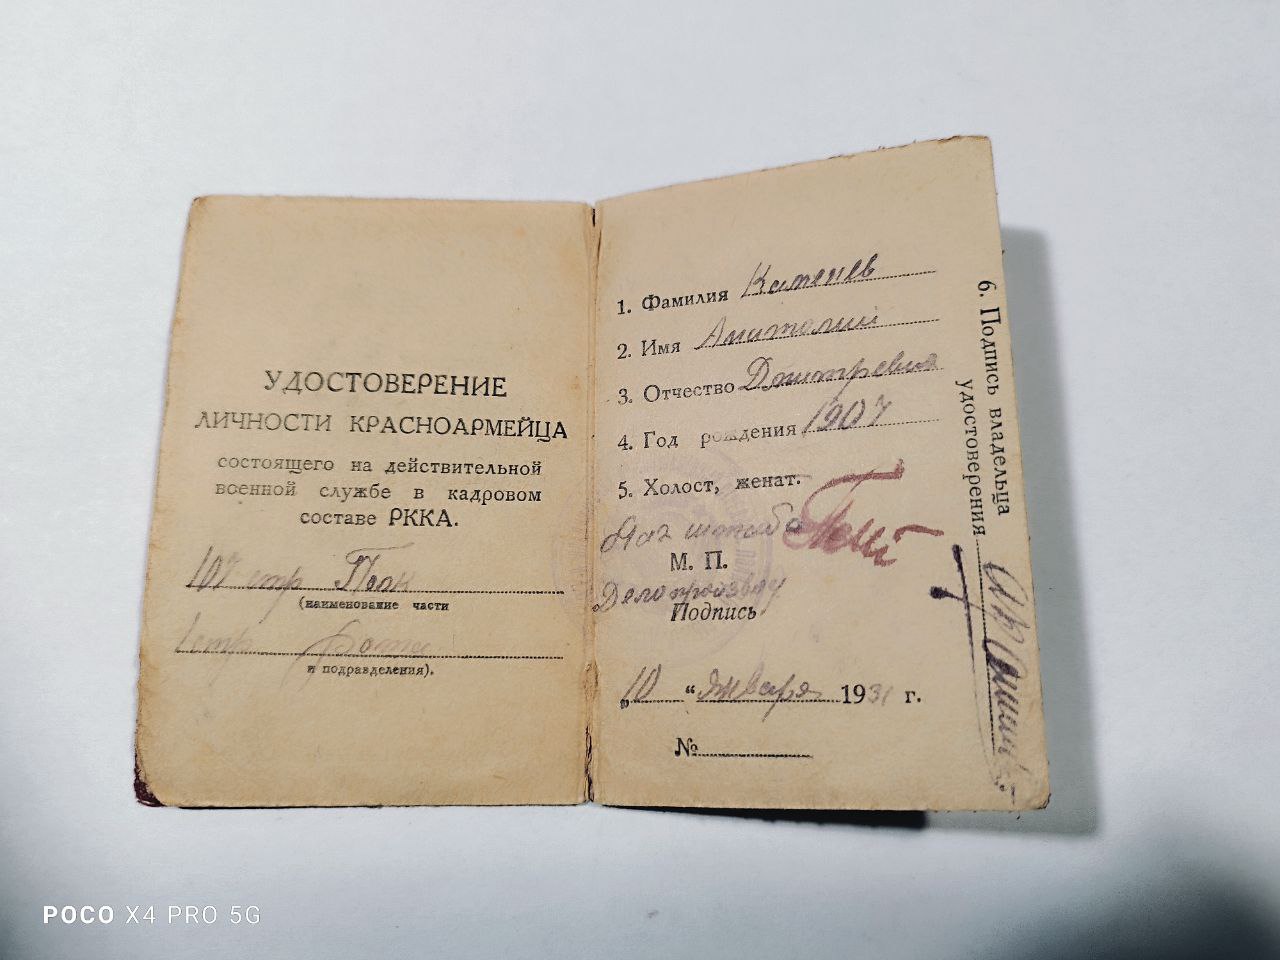 УДОСТОВЕРЕНИЕ
ЛИЧНОСТИ КРАСНОАРМЕЙЦА
состоящего на действительной
военной службе в кадровом
составе РККА.
107 стр
(наименование части
1 стр Роты
и подразделения).
1. Фамилия Каменев
2. Имя Анатолий
3. Отчество Дмитревич
4. Год рождения 1907
5. Холост, женат.
Нач штаба
М. П.
Делопроизвод
Подпись
„10 “ января 1931 г.
№
6. Подпись владельца
удостоверения
POCO X4 PRO 5G